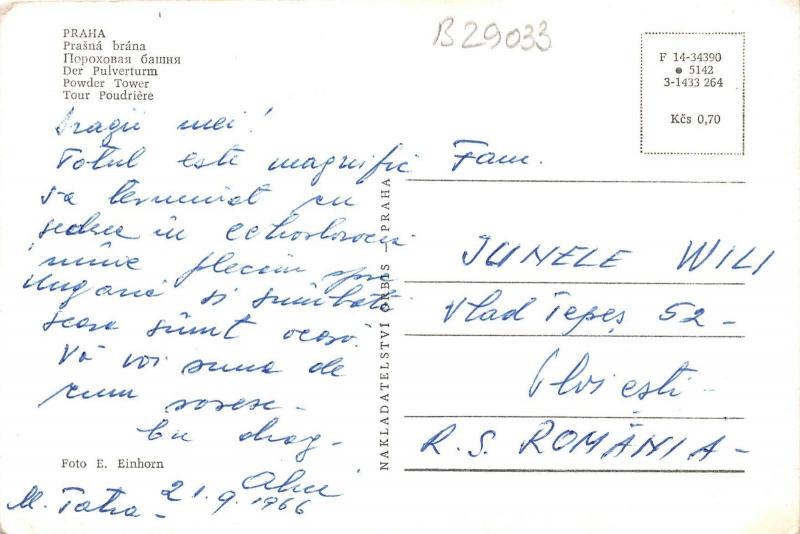 B29033
PRAHA
Prašná brána
Пороховая башня
Der Pulverturm
Powder Tower
Tour Poudrière
F 14-34390
● 5142
3-1433 264
Kčs 0,70
Dragii mei!
Totul este magnific
s-a terminat cu
șederea în Cehoslovacia
mîine plecăm spre
Ungaria și sîmbătă
seara sûnt acasă.
Vă voi suna de
cum sosesc -
Cu drag -
M. Tatra - 21.9.1966
Fam.
JUNELE WILI
Vlad Țepeș 52 -
Ploiești -
R.S. ROMÂNIA -
NAKLADATELSTVÍ ORBIS — PRAHA
Foto E. Einhorn